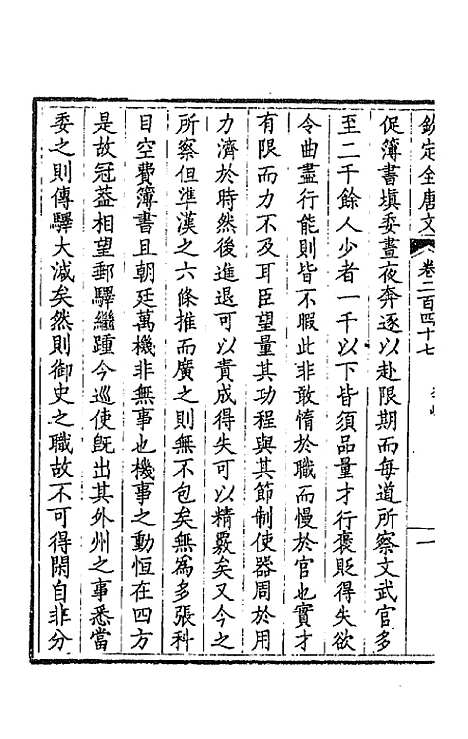 欽定全唐文 卷二百四十七 李嶠 一
促簿書填委晝夜奔逐以赴限期而每道所察文武官多
至二千餘人少者一千以下皆須品量才行褒貶得失欲
令曲盡行能則皆不暇此非敢惰於職而慢於官也實才
有限而力不及耳臣望量其功程與其節制使器周於用
力濟於時然後進退可以責成得失可以精覈矣又今之
所察但準漢之六條推而廣之則無不包矣無為多張科
目空費簿書且朝廷萬機非無事也機事之動恆在四方
是故冠葢相望郵驛繼踵今巡使旣出其外州之事悉當
委之則傳驛大減矣然則御史之職故不可得閑自非分